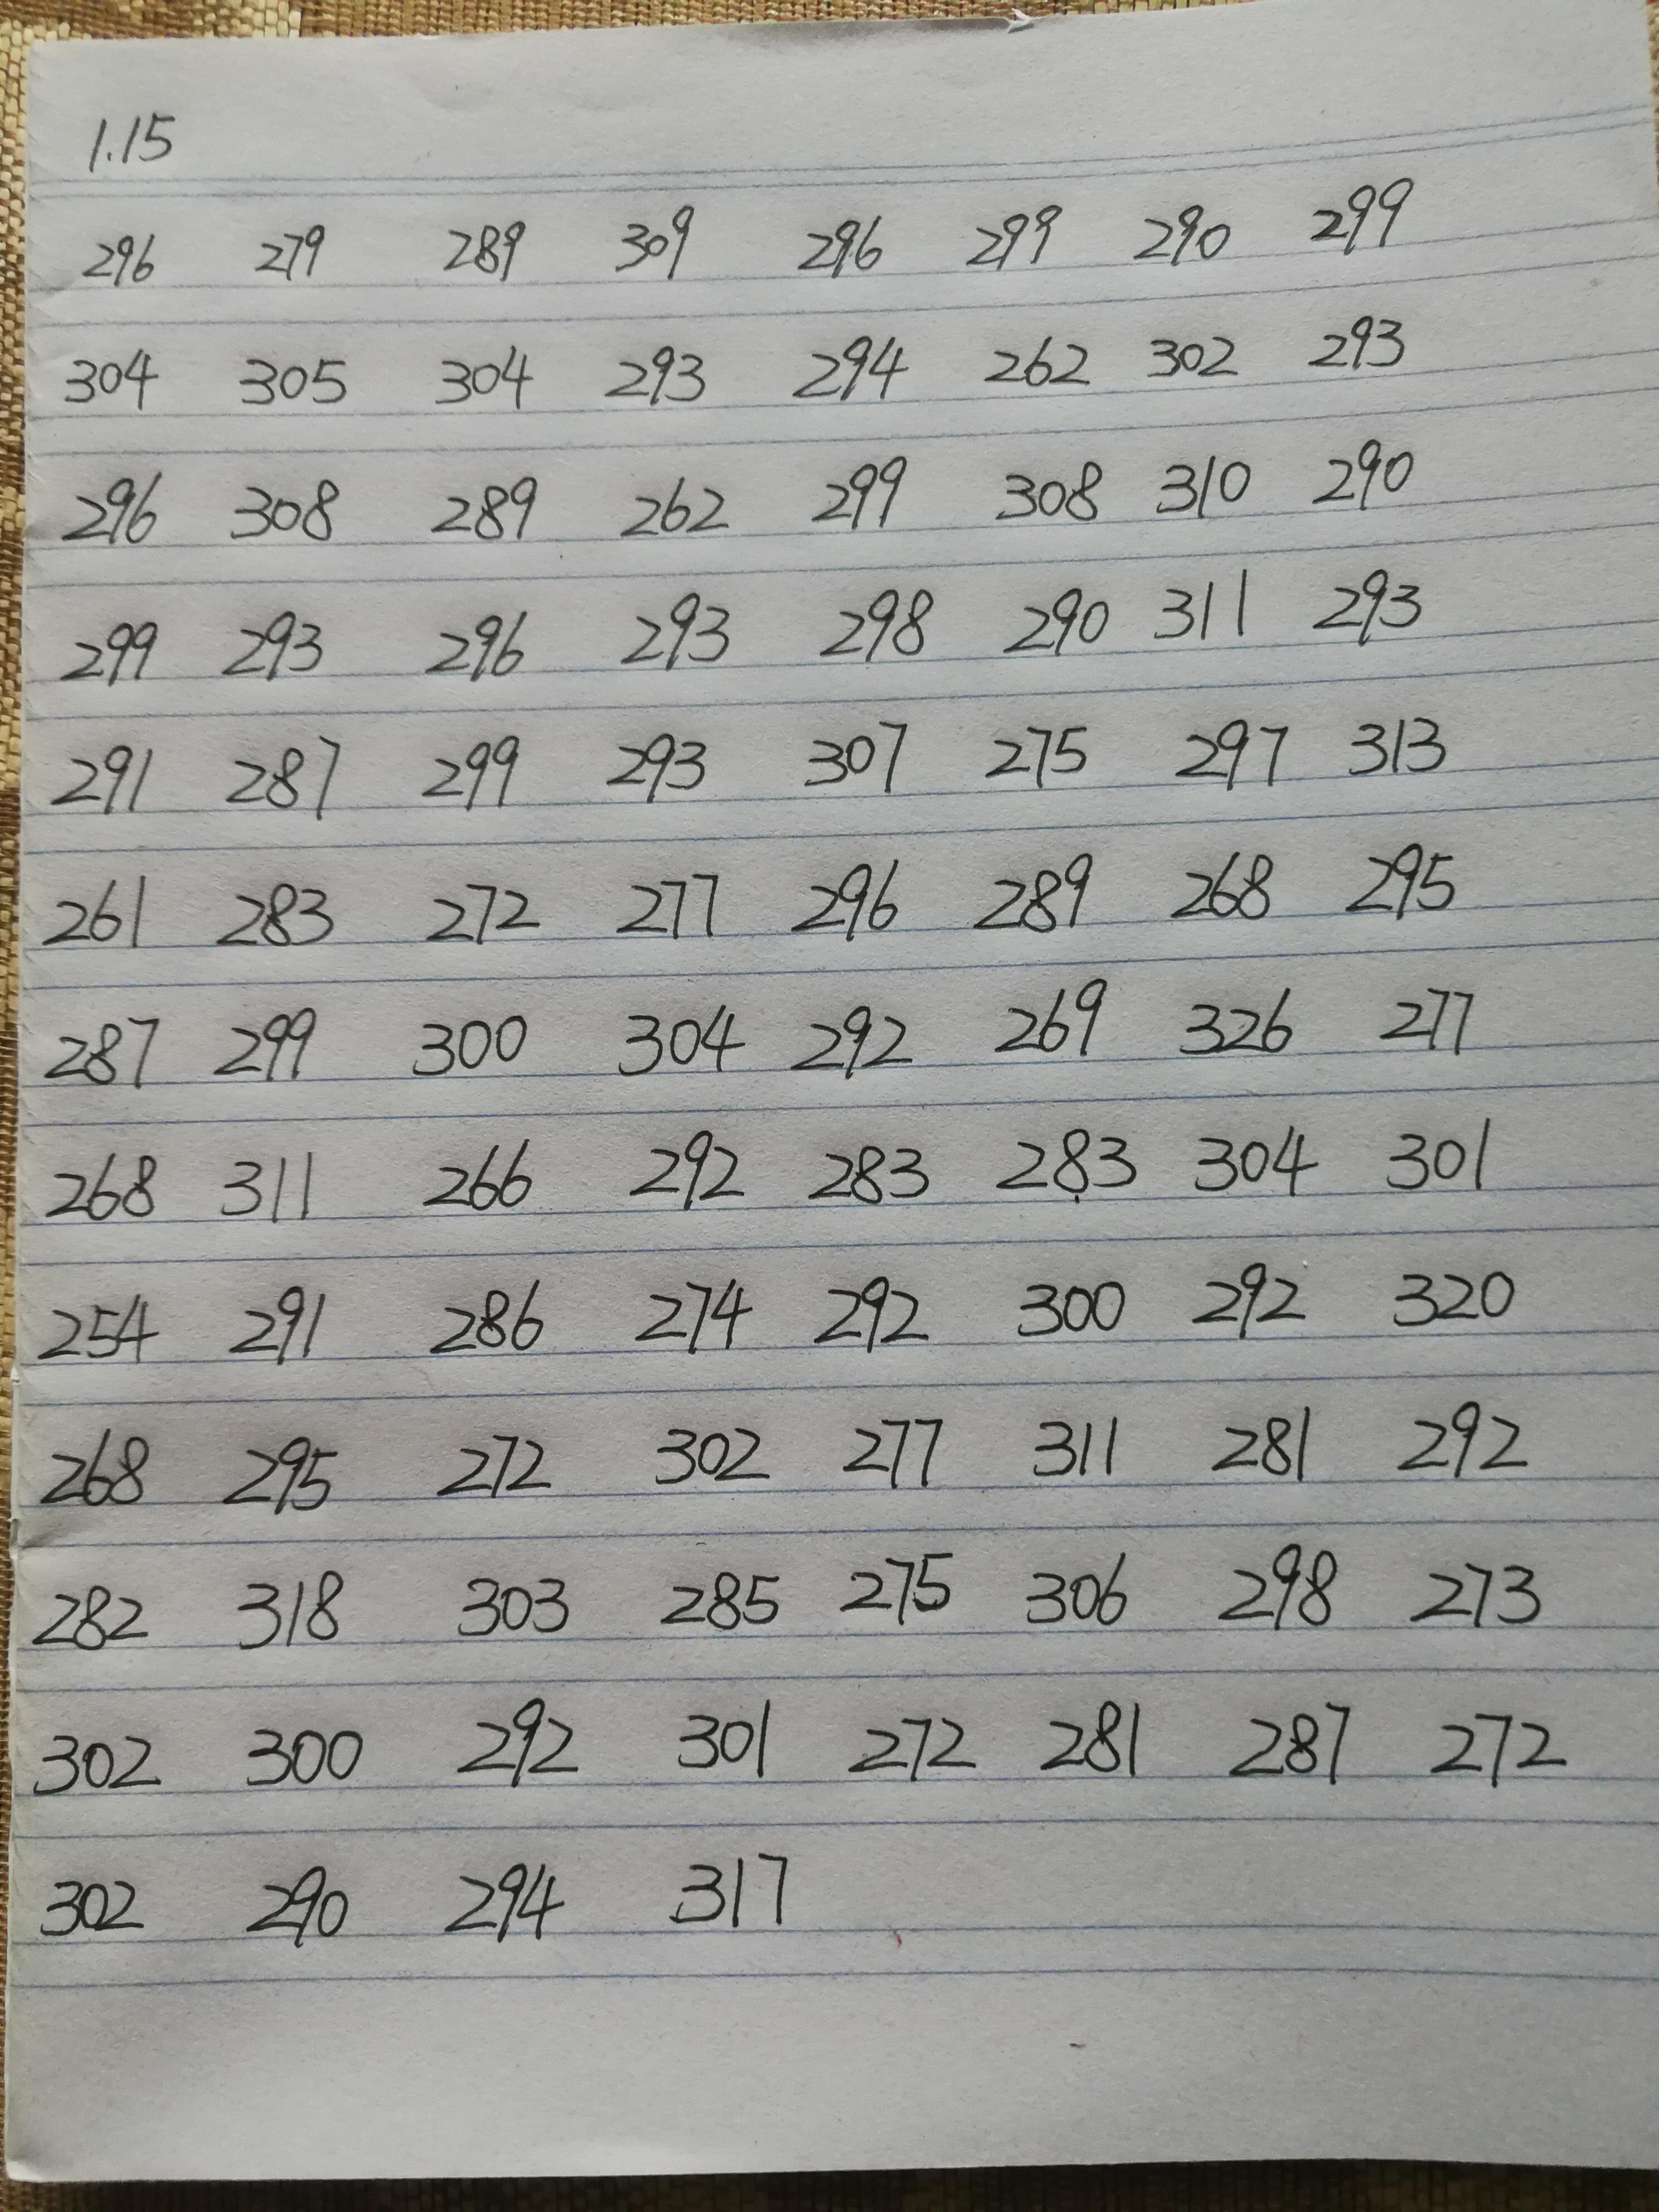 1.15
296 279 289 309 296 299 290 299
304 305 304 293 294 262 302 293
296 308 289 262 299 308 310 290
299 293 296 293 298 290 311 293
291 287 299 293 307 275 297 313
261 283 272 277 296 289 268 295
287 299 300 304 292 269 326 277
268 311 266 292 283 283 304 301
254 291 286 274 292 300 292 320
268 295 272 302 277 311 281 292
282 318 303 285 275 306 298 273
302 300 292 301 272 281 287 272
302 290 294 317